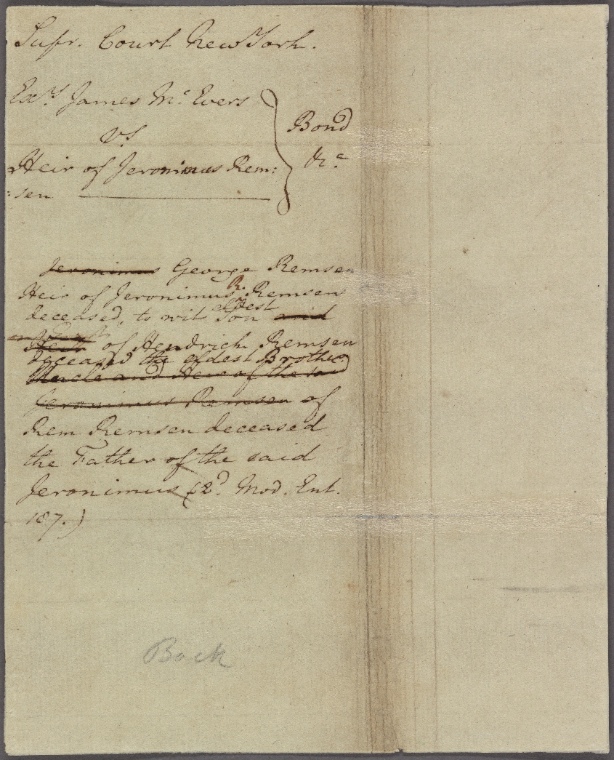 Supr. Court New York.
Exrs. James McEvers
vs
Heir of Jeronimus Rem:
:sen
Bond
&c
Jeronimus George Remsen
Heir of Jeronimus R. Remsen
deceased, to wit eldest Son and
Heir of Hendrick Remsen
deceased the eldest Brother
Uncle and Heir of the said
Jeronimus Remsen of
Rem Remsen deceased
the Father of the said
Jeronimus (2d. Mod. Ent.
187.)
Back